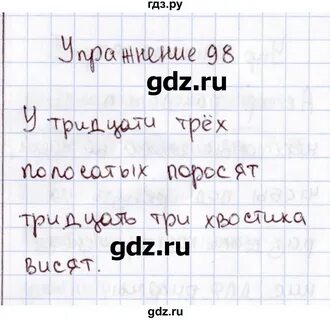 гдз.ру
Упражнение 98
gdz.ru
У тридцати трёх
gdz.ru
полосатых поросят
тридцать три хвостика
gdz.ru
висят.
gdz.ru